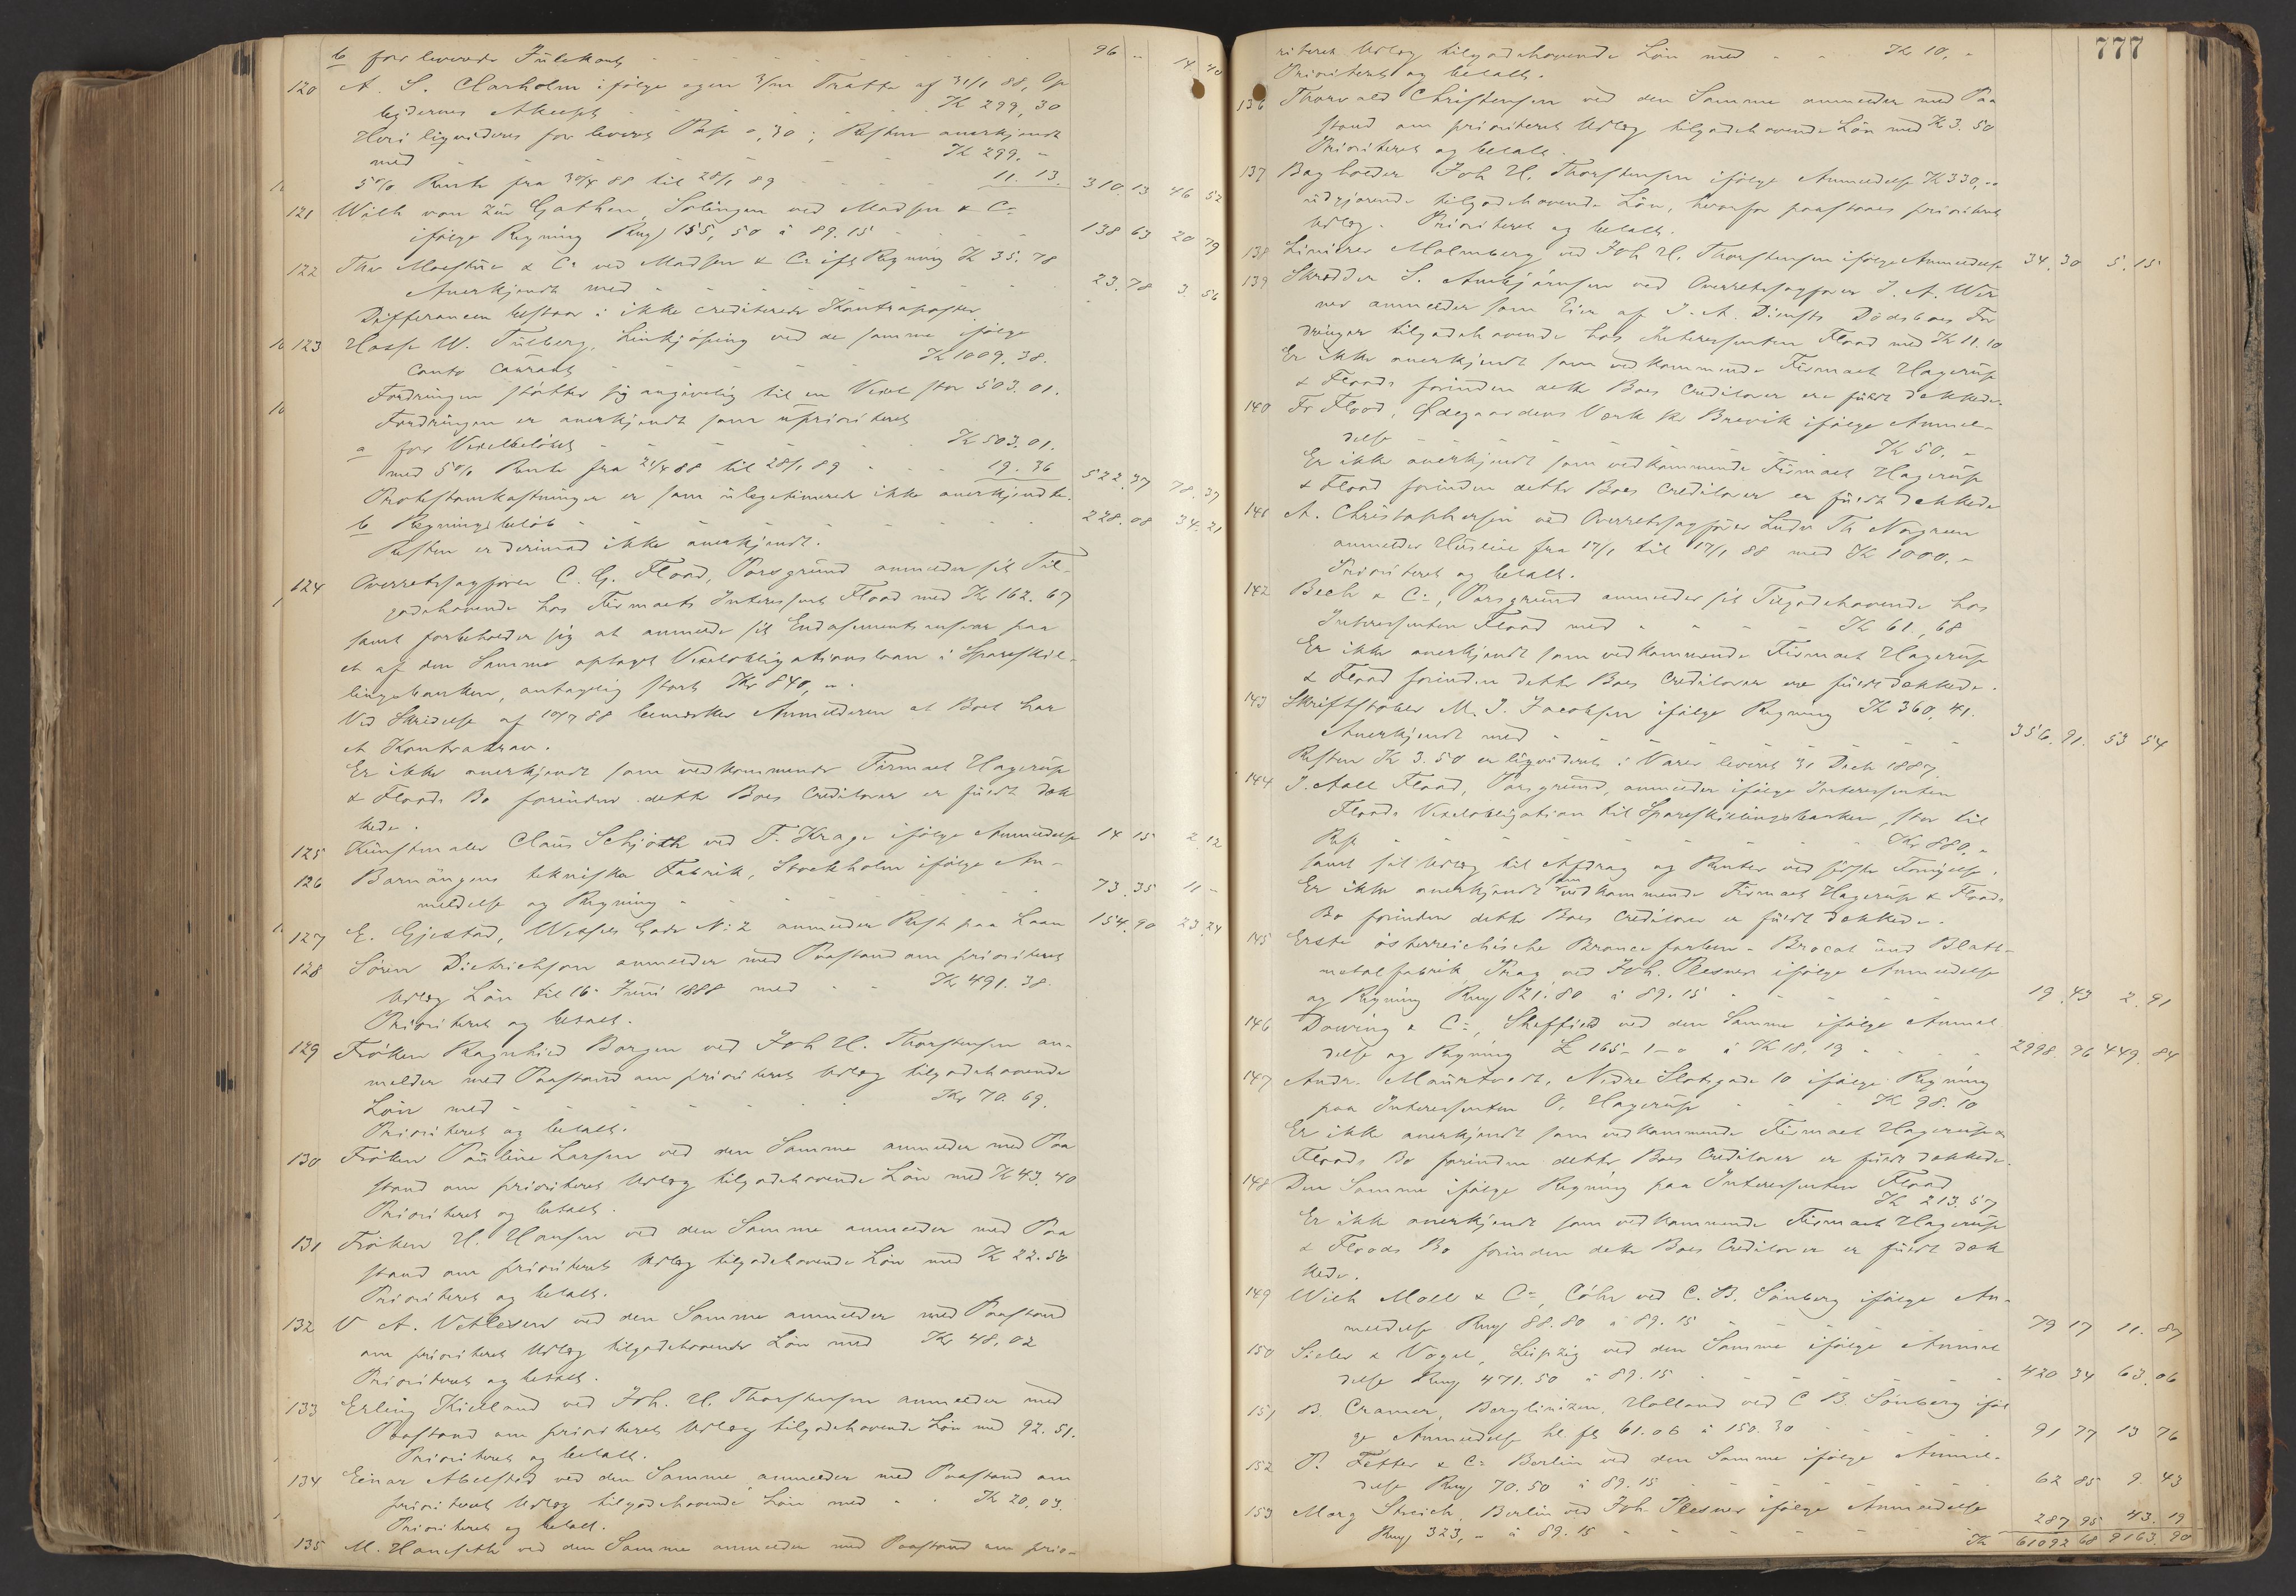 b for leverede Julekort - - - 96 " 14 40
120 A. S. Clarholm ifølge egen 3/m Tratte af 31/1 88, Op
bydernes Accept - - - Kr 299,30
Heri ligvideres for leveret Pap 0,30; Resten anerkjendt
med - - - Kr 299. -
5% Rente fra 30/4 88 til 28/1 89 - - 11. 13. 310 13 46 52
121 Wilh von zür Gathen, Solingen ved Madsen & Co
ifølge Regning Rmg 155,50 à 89.15 - - 138 63 20 79
122 & Co ved Madsen & Co ifl Regning Kr 35.78
Anerkjendt med - - - 23.78 3.56
Differancen bestaar i ikke crediterede Kontraposter.
123 W. Tullberg, Linkjöping ved de samme ifølge
Conto Courant - - - Kr 1009.38.
Fordringen støtter sig angivelig til en Vexel stor 503.01.
Fordringen er anerkjendt som uprioriteret
a for Vexelbeløbet - - - Kr 503.01.
med 5% Rente fra 21/4 88 til 28/1 89 - - 19.36 522.37 78.37
Protestomkostninger er som ulegitimerede ikke anerkjendte.
b Regningsbeløb - - - 228.08 34.21
Resten er derimod ikke anerkjendt.
124 Overretssagfører C. G. Flood, Porsgrund anmelder sit Til-
godehavende hos Firmaets Interessent Flood med Kr 162.67
samt forbeholder sig at anmelde sit Endosementsansvar paa
et af den Samme optaget Vexelobligationslaan i Spareskil-
lingsbanken, antagelig stort Kr 840, -.
Ved Skrivelse af 10/7 88 bemærker Anmelderen at Boet har
et Kontrakrav.
Er ikke anerkjendt som vedkommende Firmaet Hagerup
& Floods Bo forinden dette Boes Creditorer er fuldt dæk
kede.
125 Kunstmaler Claus Schjoth ved F. Krage ifølge Anmeldelse 14 15 2.12
126 Barnängens tekniska Fabrik, Stockholm ifølge An-
meldelse og Regning - - - 73.35 11 -
127 E. Gjestad, Wessels Gade No 2 anmelder Rest paa Laan 154.90 23.24
128 Sören Dietrichson anmelder med Paastand om prioriteret
Udlæg Løn til 16. Juni 1888 med - - Kr 491.38.
Prioriteret og betalt.
129 Frøken Ragnhild Borgen ved Joh H. Thorstensen an-
melder med Paastand om prioriteret Udlæg tilgodehavende
Løn med - - - Kr 70.69.
Prioriteret og betalt.
130 Frøken Pauline Larsen ved den Samme anmelder med Paa
stand om prioriteret Udlæg tilgodehavende Løn med Kr 43.40
Prioriteret og betalt.
131 Frøken H. Hansen ved den Samme anmelder med Paa
stand om prioriteret Udlæg tilgodehavende Løn med Kr 22.50
Prioriteret og betalt.
132 V A. Vetlesen ved den Samme anmelder med Paastand
om prioriteret Udlæg tilgodehavende Løn med Kr 48,02
Prioriteret og betalt.
133 Erling Kielland ved Joh. H. Thorstensen anmelder med
Paastand om prioriteret Udlæg tilgodehavende Løn med 92.51.
Prioriteret og betalt.
134 Einar Abelsted ved den Samme anmelder med Paastand om
prioriteret Udlæg tilgodehavende Løn med - - Kr 20.03.
Prioriteret og betalt.
135 M. Hanseth ved den Samme anmelder med Paastand om prio-
777
riteret Udlæg tilgodehavende Løn med - - Kr 10, -
Prioriteret og betalt.
136 Thorvald Christensen ved den Samme anmelder med Paa
stand om prioriteret Udlæg tilgodehavende Løn med Kr 3.50
Prioriteret og betalt.
137 Bogholder Joh H. Thorstensen ifølge Anmeldelse Kr 330,-
udgjørende tilgodehavende Løn, hvorfor paastaaes prioriteret
Udlæg. Prioriteret og betalt.
138 Liniører Malmberg ved Joh H. Thorstensen ifølge Anmeldelse 34.30 5.15
139 Skrædder S. Ambjörnsen ved Overretssagfører J. A. Wer
ner anmelder som Eier af J. A. Dimsts Dødsboes For
dringer tilgodehavende hos Interessenten Flood med Kr 11.10
Er ikke anerkjendt som vedkommende Firmaet Hagerup
& Floods forinden dette Boes Creditorer ere fuldt dækkede.
140 Fr Flood, Ødegaardens Værk pr Brevik ifølge Anmel-
delse - - - Kr 50, -
Er ikke anerkjendt som vedkommende Firmaet Hagerup
& Flood forinden dette Boes Creditorer er fuldt dækkede
141 A. Christophersen ved Overretssagfører Ludv Th Norgreen
anmelder Husleie fra 17/1 til 17/7 88 med Kr 1000. -
Prioriteret og betalt.
142 Bech & Co, Porsgrund anmelder sit Tilgodehavende hos
Interessenten Flood med - - - Kr 61.,68
Er ikke anerkjendt som vedkommende Firmaet Hagerup
& Flood forinden dette Boes Creditorer ere fuldt dækkede.
143 Skriftstøber M. J. Jacobsen ifølge Regning Kr 360,41.
Anerkjendt med - - - 356.91. 53 54
Resten Kr 3.50 er ligvideret i Varer leveret 31 Decb 1887.
144 J. Aall Flood, Porsgrund, anmelder ifølge Interessenten
Floods Vexelobligation til Spareskillingsbanken, stor til
Rest - - - Kr 880, -
samt sit Udlæg til Afdrag og Renter ved sidste Fornyelse.
Er ikke anerkjendt som vedkommende Firmaet Hagerup & Floods
Bo forinden dette Boes Creditorer er fuldt dækkede.
145 Erste österreichische Bronce farben - Brocat und Blatt-
metal fabrik Prag ved Joh. Plesner ifølge Anmeldelse
og Regning Rmg 21.80 à 89.15 - - - 19.43 2.91
146 Dowing & Co, Sheffield ved den Samme ifølge Anmel
delse og Regning £ 165-1-0 à Kr 18,19 - - - 2998.96 449.84
147 Andr. Maurtvedt, Nedre Slotsgade 10 ifølge Regning
paa Interessenten O. Hagerup - - - Kr 98.10
Er ikke anerkjendt som vedkommende Firmaet Hagerup &
Floods Bo forinden dette Boes Creditorer er fuldt dækkede.
148 Den Samme ifølge Regning paa Interessenten Flood
Kr 213.57
Er ikke anerkjendt som vedkommende Firmaet Hagerup
& Floods Bo forinden dette Boes Creditorer er fuldt dæk
kede.
149 Wilh Moll & Co, Cöln ved C. B. Sönberg ifølge An-
meldelse Rmg 88.80 à 89.15 - - - 79 17 11.87
150 Sieler & Vogel, Leipzig ved den Samme ifølge Anmel
delse Rmg 471.50 à 89.15 - - - 420 34 63.06
151 B. Cramer, Holland ved C B. Sönberg iføl
ge Anmeldelse hl. fl 61.06 à 150.30 - - - 91 77 13 76
152 P. Fetter & Co Berlin ved den Samme ifølge Anmel-
delse Rmg 70.50 à 89.15 - - - 62 85 9 43
153 Marg Streich, Berlin ved Joh Plesner ifølge Anmeldelse
Rmg 323, - à 89.15 - - - 287 95 43.19
Kr 61092 68 9163.90